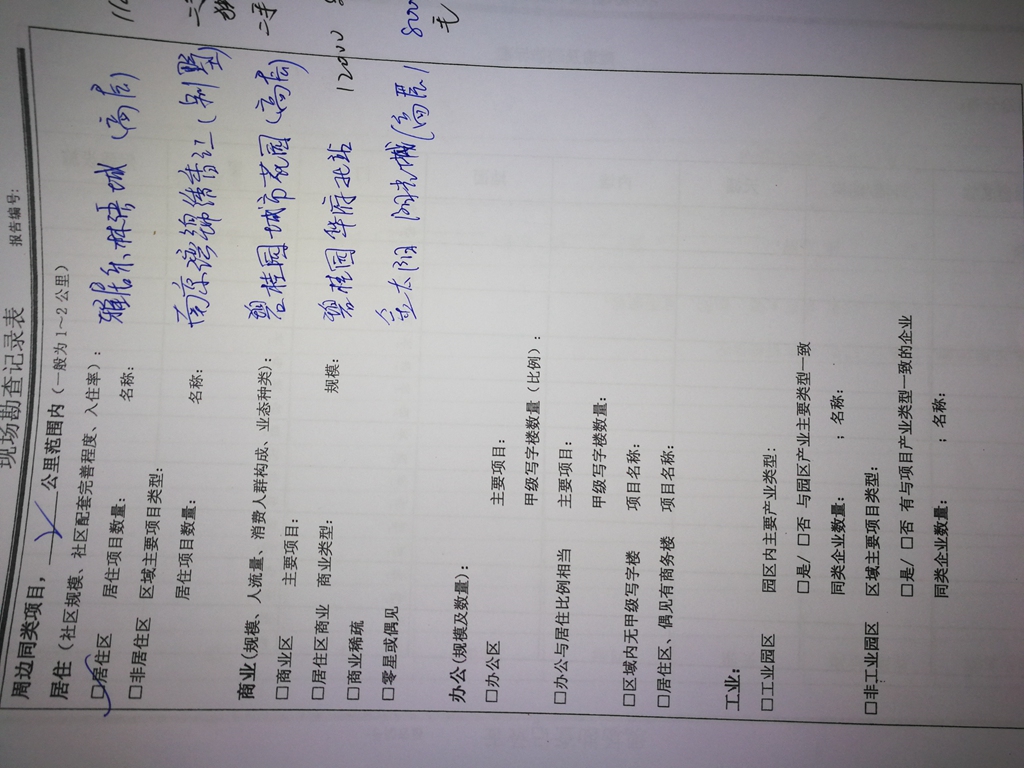 现场勘查记录表
报告编号:
周边同类项目，公里范围内（一般为1～2公里）
居住（社区规模、社区配套完善程度、入住率）:
□居住区 居住项目数量: 名称: 雅居乐林语城（高层）
□非居住区 区域主要项目类型:
居住项目数量: 名称: 锦绣香江（别墅）
商业(规模、人流量、消费人群构成、业态种类):
□商业区 主要项目: 碧桂园城市花园（高层）
□居住区商业 商业类型: 规模: 碧桂园华府北站 12000
□商业稀疏
□零星或偶见 金太阳 阳光城（高层）
办公(规模及数量):
□办公区 主要项目:
甲级写字楼数量（比例）:
□办公与居住比例相当 主要项目:
甲级写字楼数量:
□区域内无甲级写字楼 项目名称:
□居住区、偶见有商务楼 项目名称:
工业:
□工业园区 园区内主要产业类型:
□是/□否 与园区产业主要类型一致
同类企业数量: ；名称:
□非工业园区 区域主要项目类型:
□是/□否 有与项目产业类型一致的企业
同类企业数量: ；名称:
二手
毛